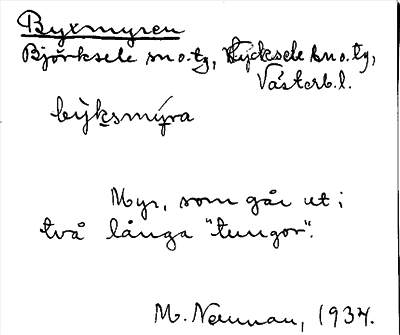 Byxmyren
Bjørksele sn o. tg, Lycksele sn o. tg,
Västerb. l.
bỳksmýra
Myr, som går ut i
två långa "tungor".
M. Neuman, 1937.